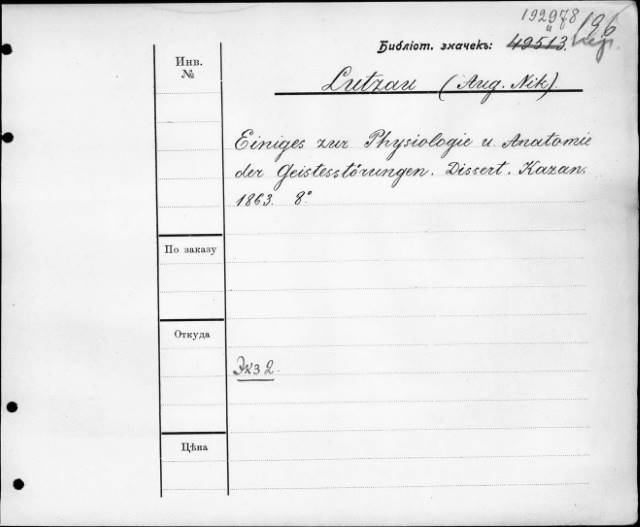 192978
и
Библіот. значекъ: 49513.
196
Инв.
№
Lutzau (Aug. Nik).
Einiges zur Physiologie u. Anatomie
der Geistesstörungen. Dissert. Kazan.
1863. 8°
По заказу
Откуда
Экз 2
Цѣна